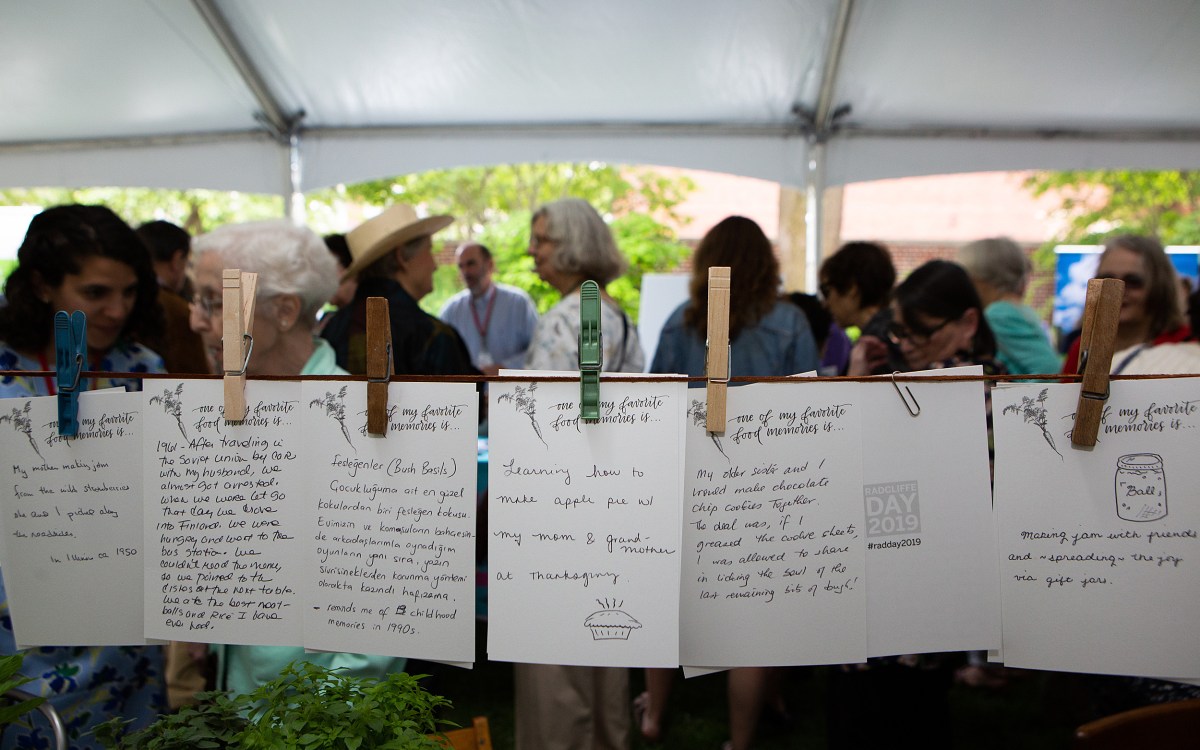 My mother making jam
from the wild strawberries
she and I picked along
the roadsides.
In Illinois ca 1950
one of my favorite
food memories is...
1961 - After traveling in
the Soviet Union by car
with my husband, we
almost got arrested.
When we were let go
that day we drove
into Finland. We were
hungry and went to the
bus station. We
couldn't read the menu,
so we pointed to the
dishes at the next table.
We ate the best meat-
balls and Rice I have
ever had.
of my favorite
food memories is...
Fesleğenler (Bush Basils)
Çocukluğuma ait en güzel
kokulardan biri fesleğen kokusu.
Evimizin ve komşuların bahçesin-
de arkadaşlarımla oynadığım
oyunların yanı sıra, yazın
sivrisineklerden korunma yöntemi
olarakta kazındı hafızama.
- reminds me of childhood
memories in 1990s.
one of my favorite
food memories is...
Learning how to
make apple pie w/
my mom & grand-
mother
at Thanksgiving.
one of my favorite
food memories is...
My older sister and I
would make chocolate
chip cookies together.
The deal was, if I
greased the cookie sheets,
I was allowed to share
in licking the bowl of the
last remaining bits of dough!
RADCLIFFE
DAY
2019
#radday2019
of my favorite
memories is...
Ball
Making jam with friends
and ~spreading~ the joy
via gift jars.